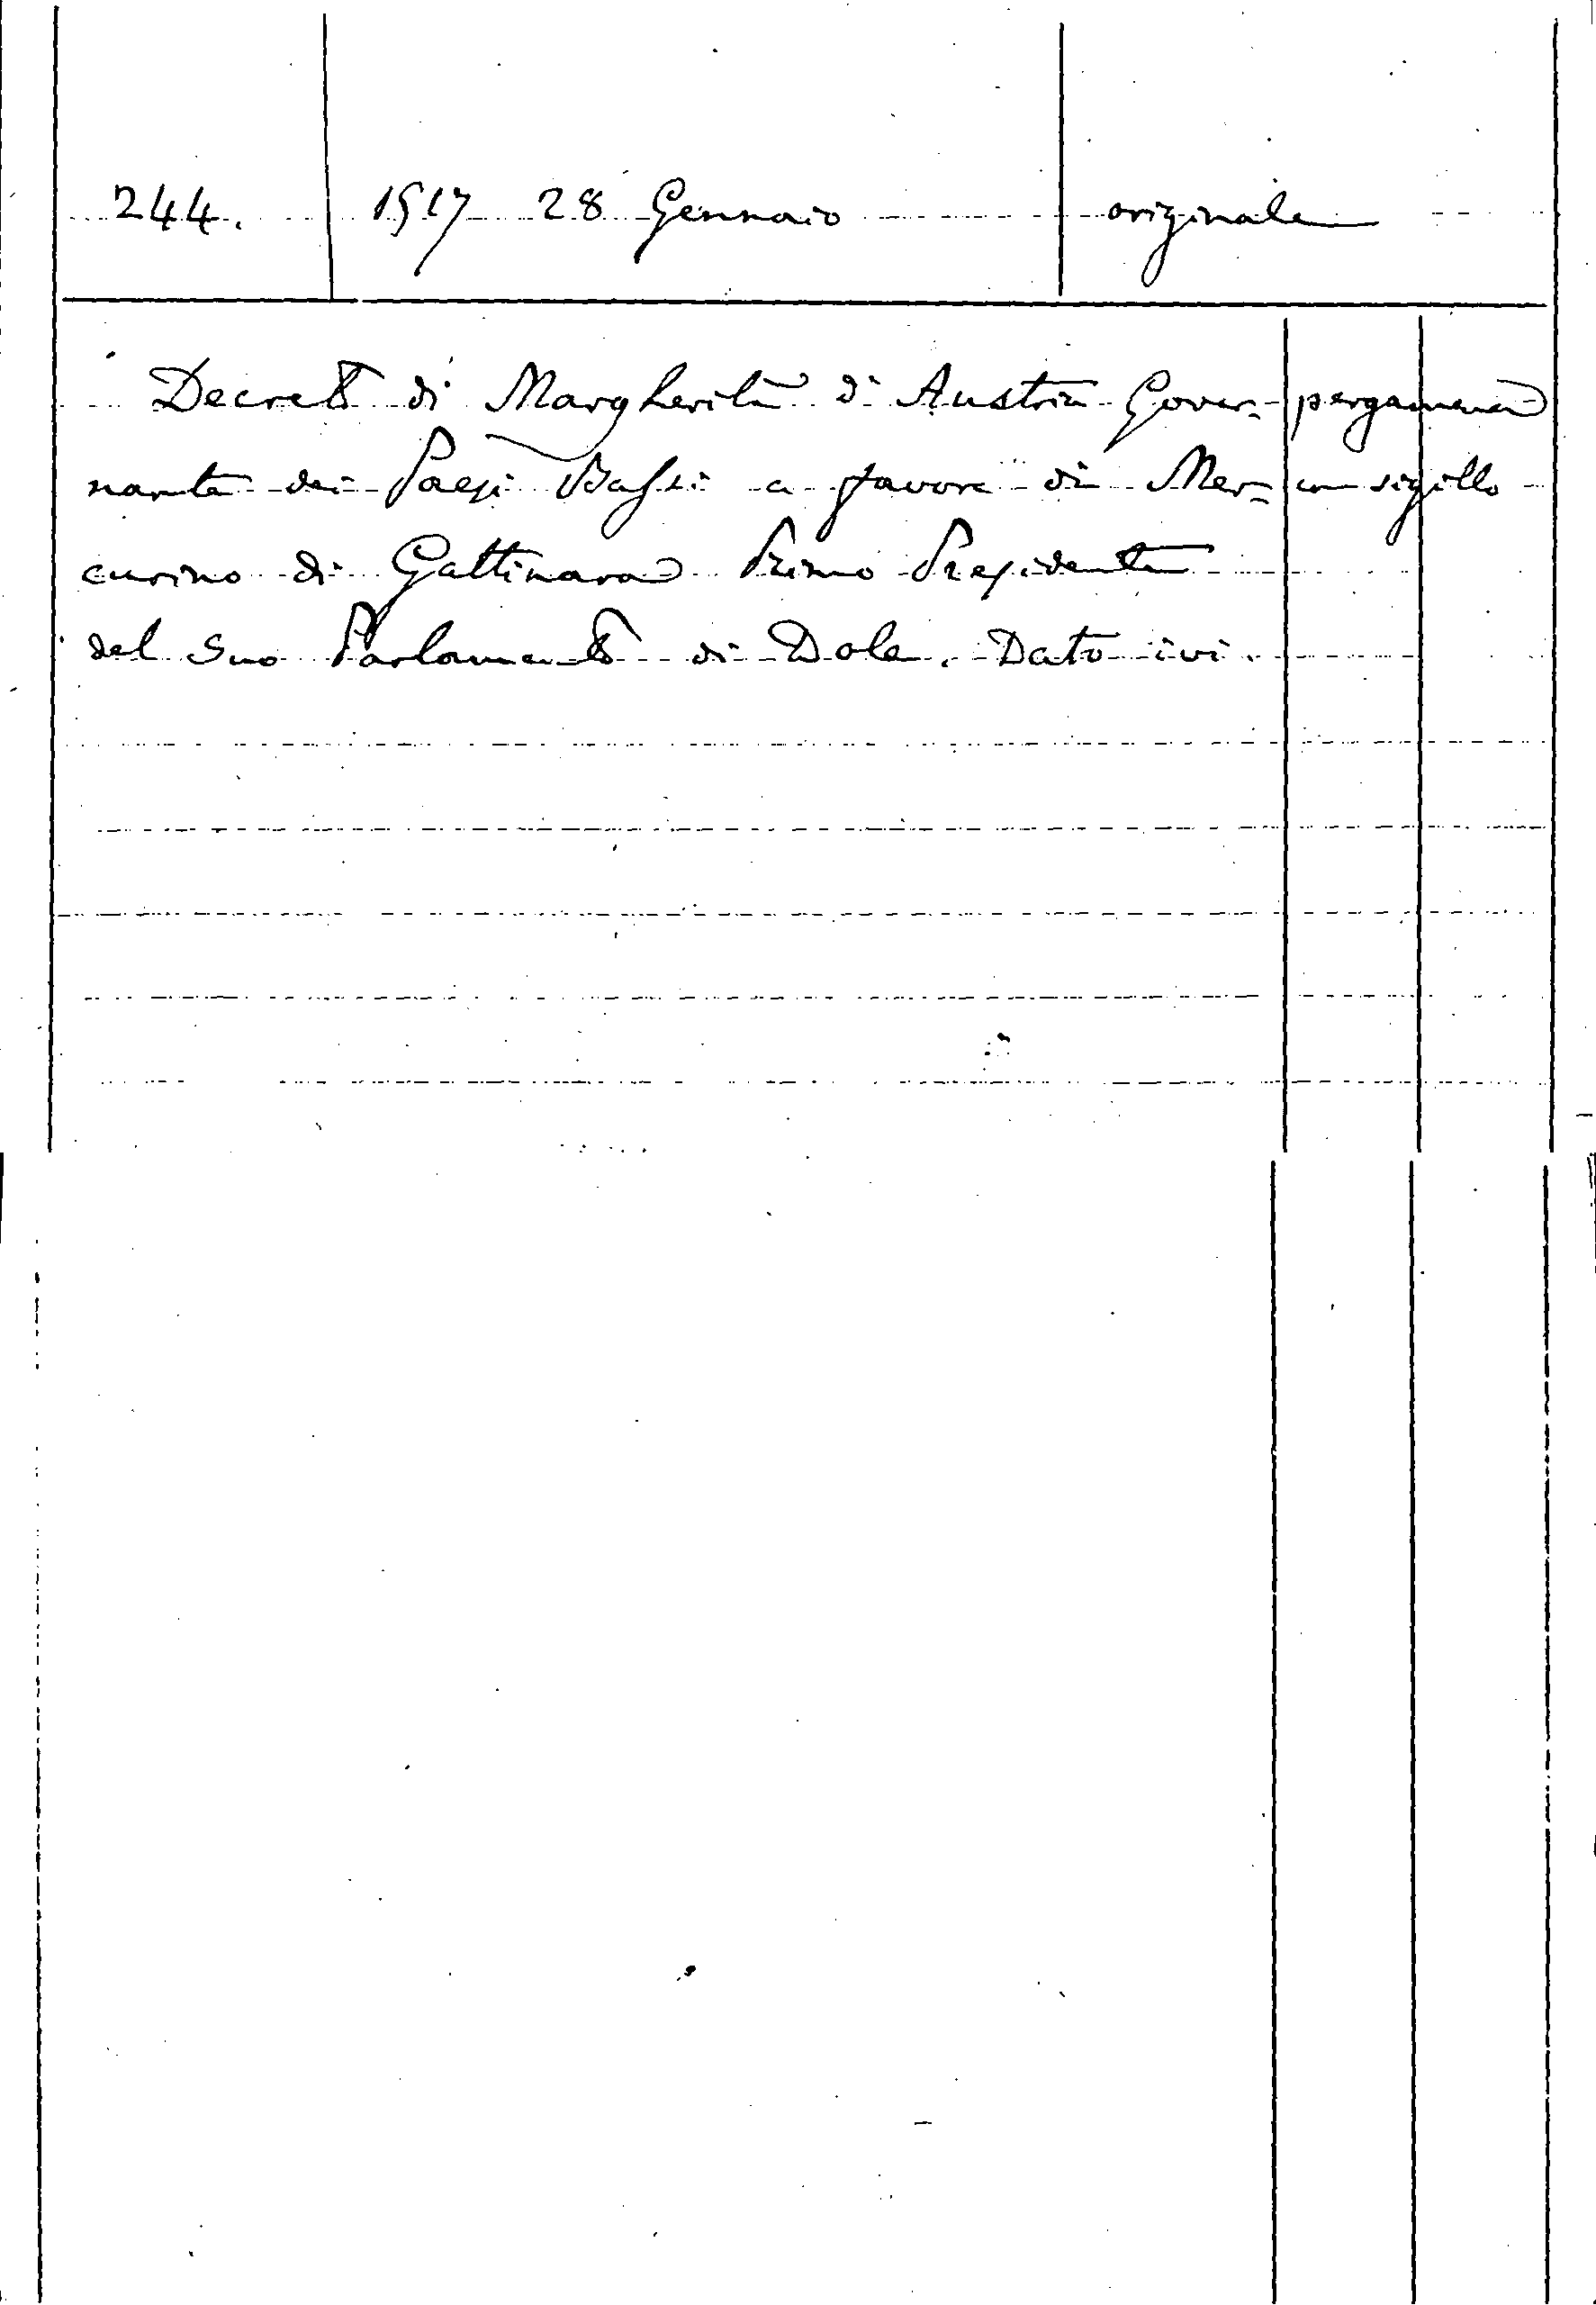 244. 1517 28 Gennaio originale
Decreto di Margherita d'Austria Gover- pergamena
nante dei Paesi Bassi a favore di Mer- con sigillo
curino di Gattinara Primo Presidente
del suo Parlamento di Dole. Dato ivi.